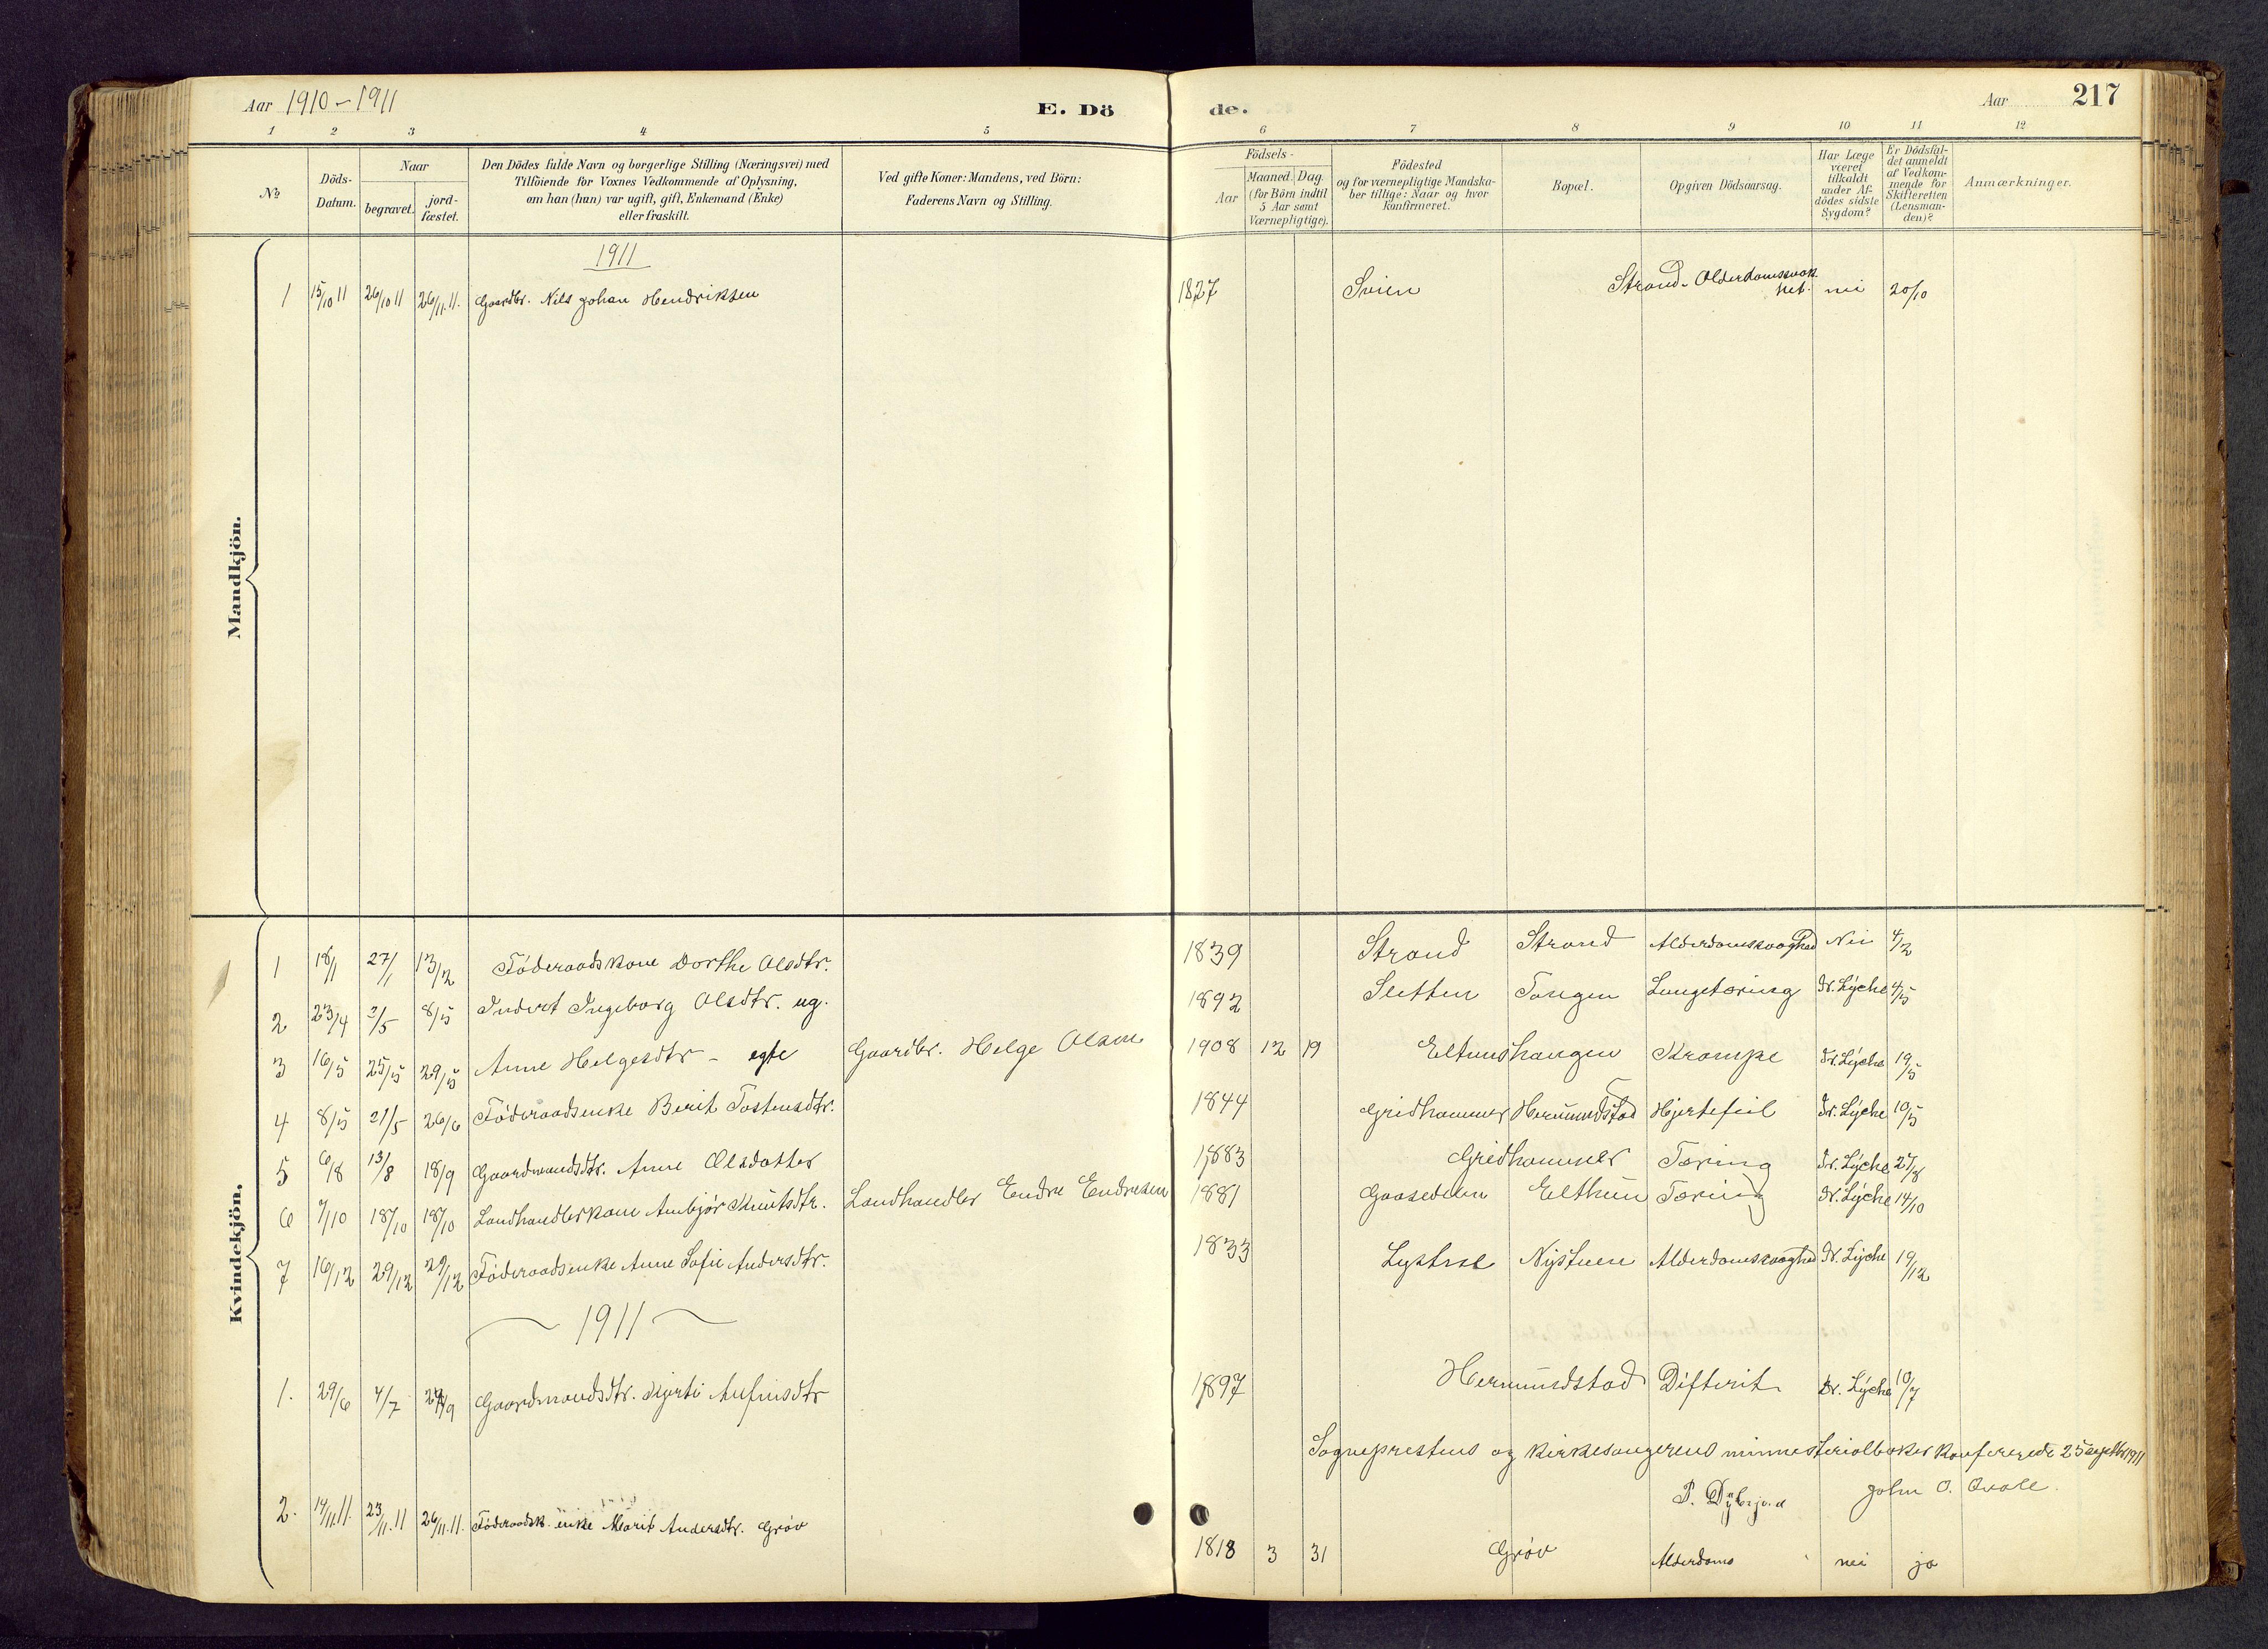 Aar 1910-1911 E. Dö de. Aar 217
1 2 3 4 5 6 7 8 9 10 11 12
No
Döds-Datum.
Naar
begravet.
jord-fæstet.
Den Dödes fulde Navn og borgerlige Stilling (Næringsvei) med
Tilföiende for Voxnes Vedkommende af Oplysning,
om han (hun) var ugift, gift, Enkemand (Enke)
eller fraskilt.
Ved gifte Koner: Mandens, ved Börn:
Faderens Navn og Stilling.
Födsels-
Aar
Maaned. Dag.
(for Börn indtil
5 Aar samt
Værnepligtige).
Födested
og for værnepligtige Mandska-
ber tillige: Naar og hvor
konfirmeret.
Bopæl.
Opgiven Dödsaarsag.
Har Læge
været
tilkaldt
under Af-
dödes sidste
Sygdom?
Er Dödsfal-
det anmeldt
af Vedkom-
mende for
Skifteretten
(Lensman-
den)?
Anmærkninger.
Mandkjön.
1911
1 15/10 11 26/10 11 26/11.11. Gaardbr. Nils Johan Hendriksen 1827 Svien Strand. Alderdomssvak
het. nei 20/10
Kvindekjön.
1 18/1 27/1 13/2 Föderaadskone Dorthe Olsdtr. 1839 Strand Strand Alderdomssvaghed Nei 4/2
2 23/4 2/5 8/5 Inderst Ingeborg Olsdtr. ug. 1892 Sletten Tangen Lungetæring Dr. Lyche 4/5
3 16/5 25/5 29/5 Anne Helgesdtr - egte Gaardbr. Helge Olsen 1908 12 19 Eltunshaugen Krampe Dr. Lyche 19/5
4 8/5 21/5 26/6 Föderaadsenke Berit Tostensdtr. 1844 Gridhammer Hermundstad Hjertefeil Dr. Lyche 10/5
5 6/8 13/8 18/9 Gaardmandsdtr. Anne Olsdatter 1883 Gridhammer Tæring Dr. Lyche 27/8
6 7/10 18/10 18/10 Landhandlerkone Ambjør Knutsdtr. Landhandler Endre Endresen 1881 Gaasedelen Elthun Tæring Dr. Lyche 14/10
7 16/12 29/12 29/12 Föderaadsenke Anne Sofie Andersdtr. 1833 Lystrae Nystuen Alderdomssvaghed Dr. Lyche 19/12
1911
1. 29/6 4/7 24/9 Gaardmandsdtr. Kjersti Arfinsdtr 1897 Hermundstad Difterit Dr. Lyche 10/7
Sogneprestens og kirkesangerens minnesterialbøker konfererede 25 septbr 1911
P. Dybsjord John O. Qvale.
2. 14/11 11. 23/11.11 26/11.11. Föderaadsk. enke Marit Andersdtr. Grøv 1818 3 31 Grøv Alderdoms nei ja